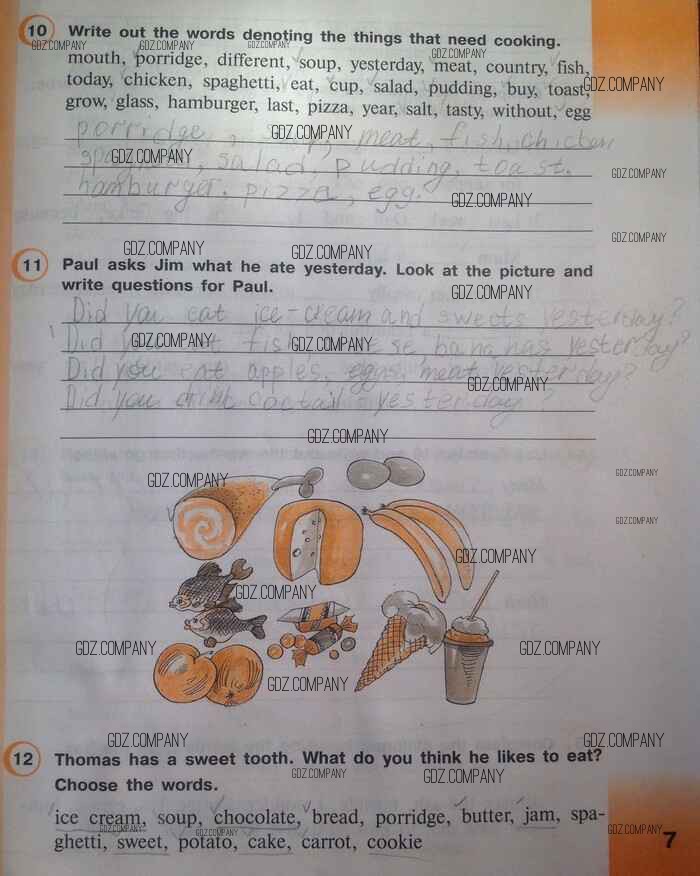 10 Write out the words denoting the things that need cooking.
GDZ.COMPANY GDZ.COMPANY GDZ.COMPANY
mouth, porridge, different, soup, yesterday, meat, country, fish,
GDZ.COMPANY
today, chicken, spaghetti, eat, cup, salad, pudding, buy, toast,
GDZ.COMPANY
grow, glass, hamburger, last, pizza, year, salt, tasty, without, egg
porridge, meat, fish, chicken
GDZ.COMPANY
salad, pudding, toast.
GDZ.COMPANY GDZ.COMPANY
hamburger. pizza, egg.
GDZ.COMPANY
GDZ.COMPANY
GDZ.COMPANY GDZ.COMPANY
11 Paul asks Jim what he ate yesterday. Look at the picture and
write questions for Paul.
GDZ.COMPANY
Did you eat ice-cream and sweets yesterday?
Did fish bananas yesterday?
GDZ.COMPANY GDZ.COMPANY
Did you eat apples, eggs, meat yesterday?
GDZ.COMPANY
Did you drink coctail yesterday?
GDZ.COMPANY
GDZ.COMPANY
GDZ.COMPANY
GDZ.COMPANY
GDZ.COMPANY
GDZ.COMPANY
GDZ.COMPANY GDZ.COMPANY
GDZ.COMPANY
GDZ.COMPANY GDZ.COMPANY
12 Thomas has a sweet tooth. What do you think he likes to eat?
GDZ.COMPANY GDZ.COMPANY
Choose the words.
ice cream, soup, chocolate, bread, porridge, butter, jam, spa-
GDZ.COMPANY GDZ.COMPANY GDZ.COMPANY
ghetti, sweet, potato, cake, carrot, cookie
7